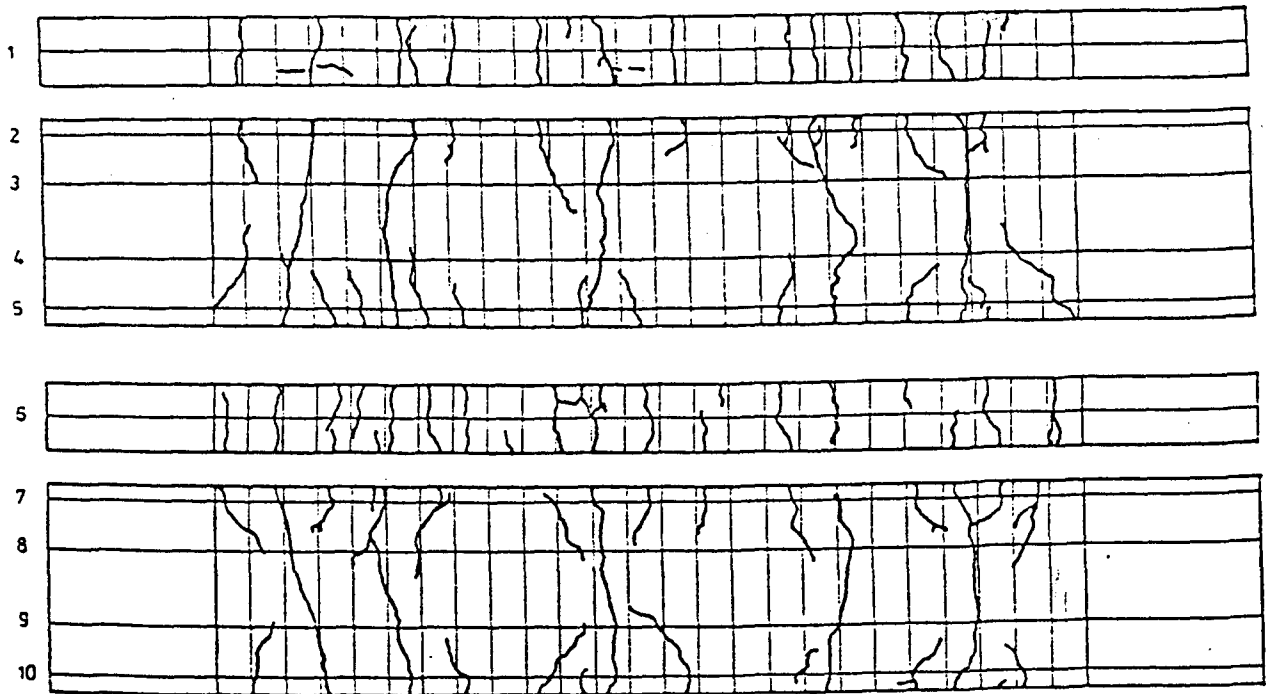 1
2
3
4
5
5
7
8
9
10